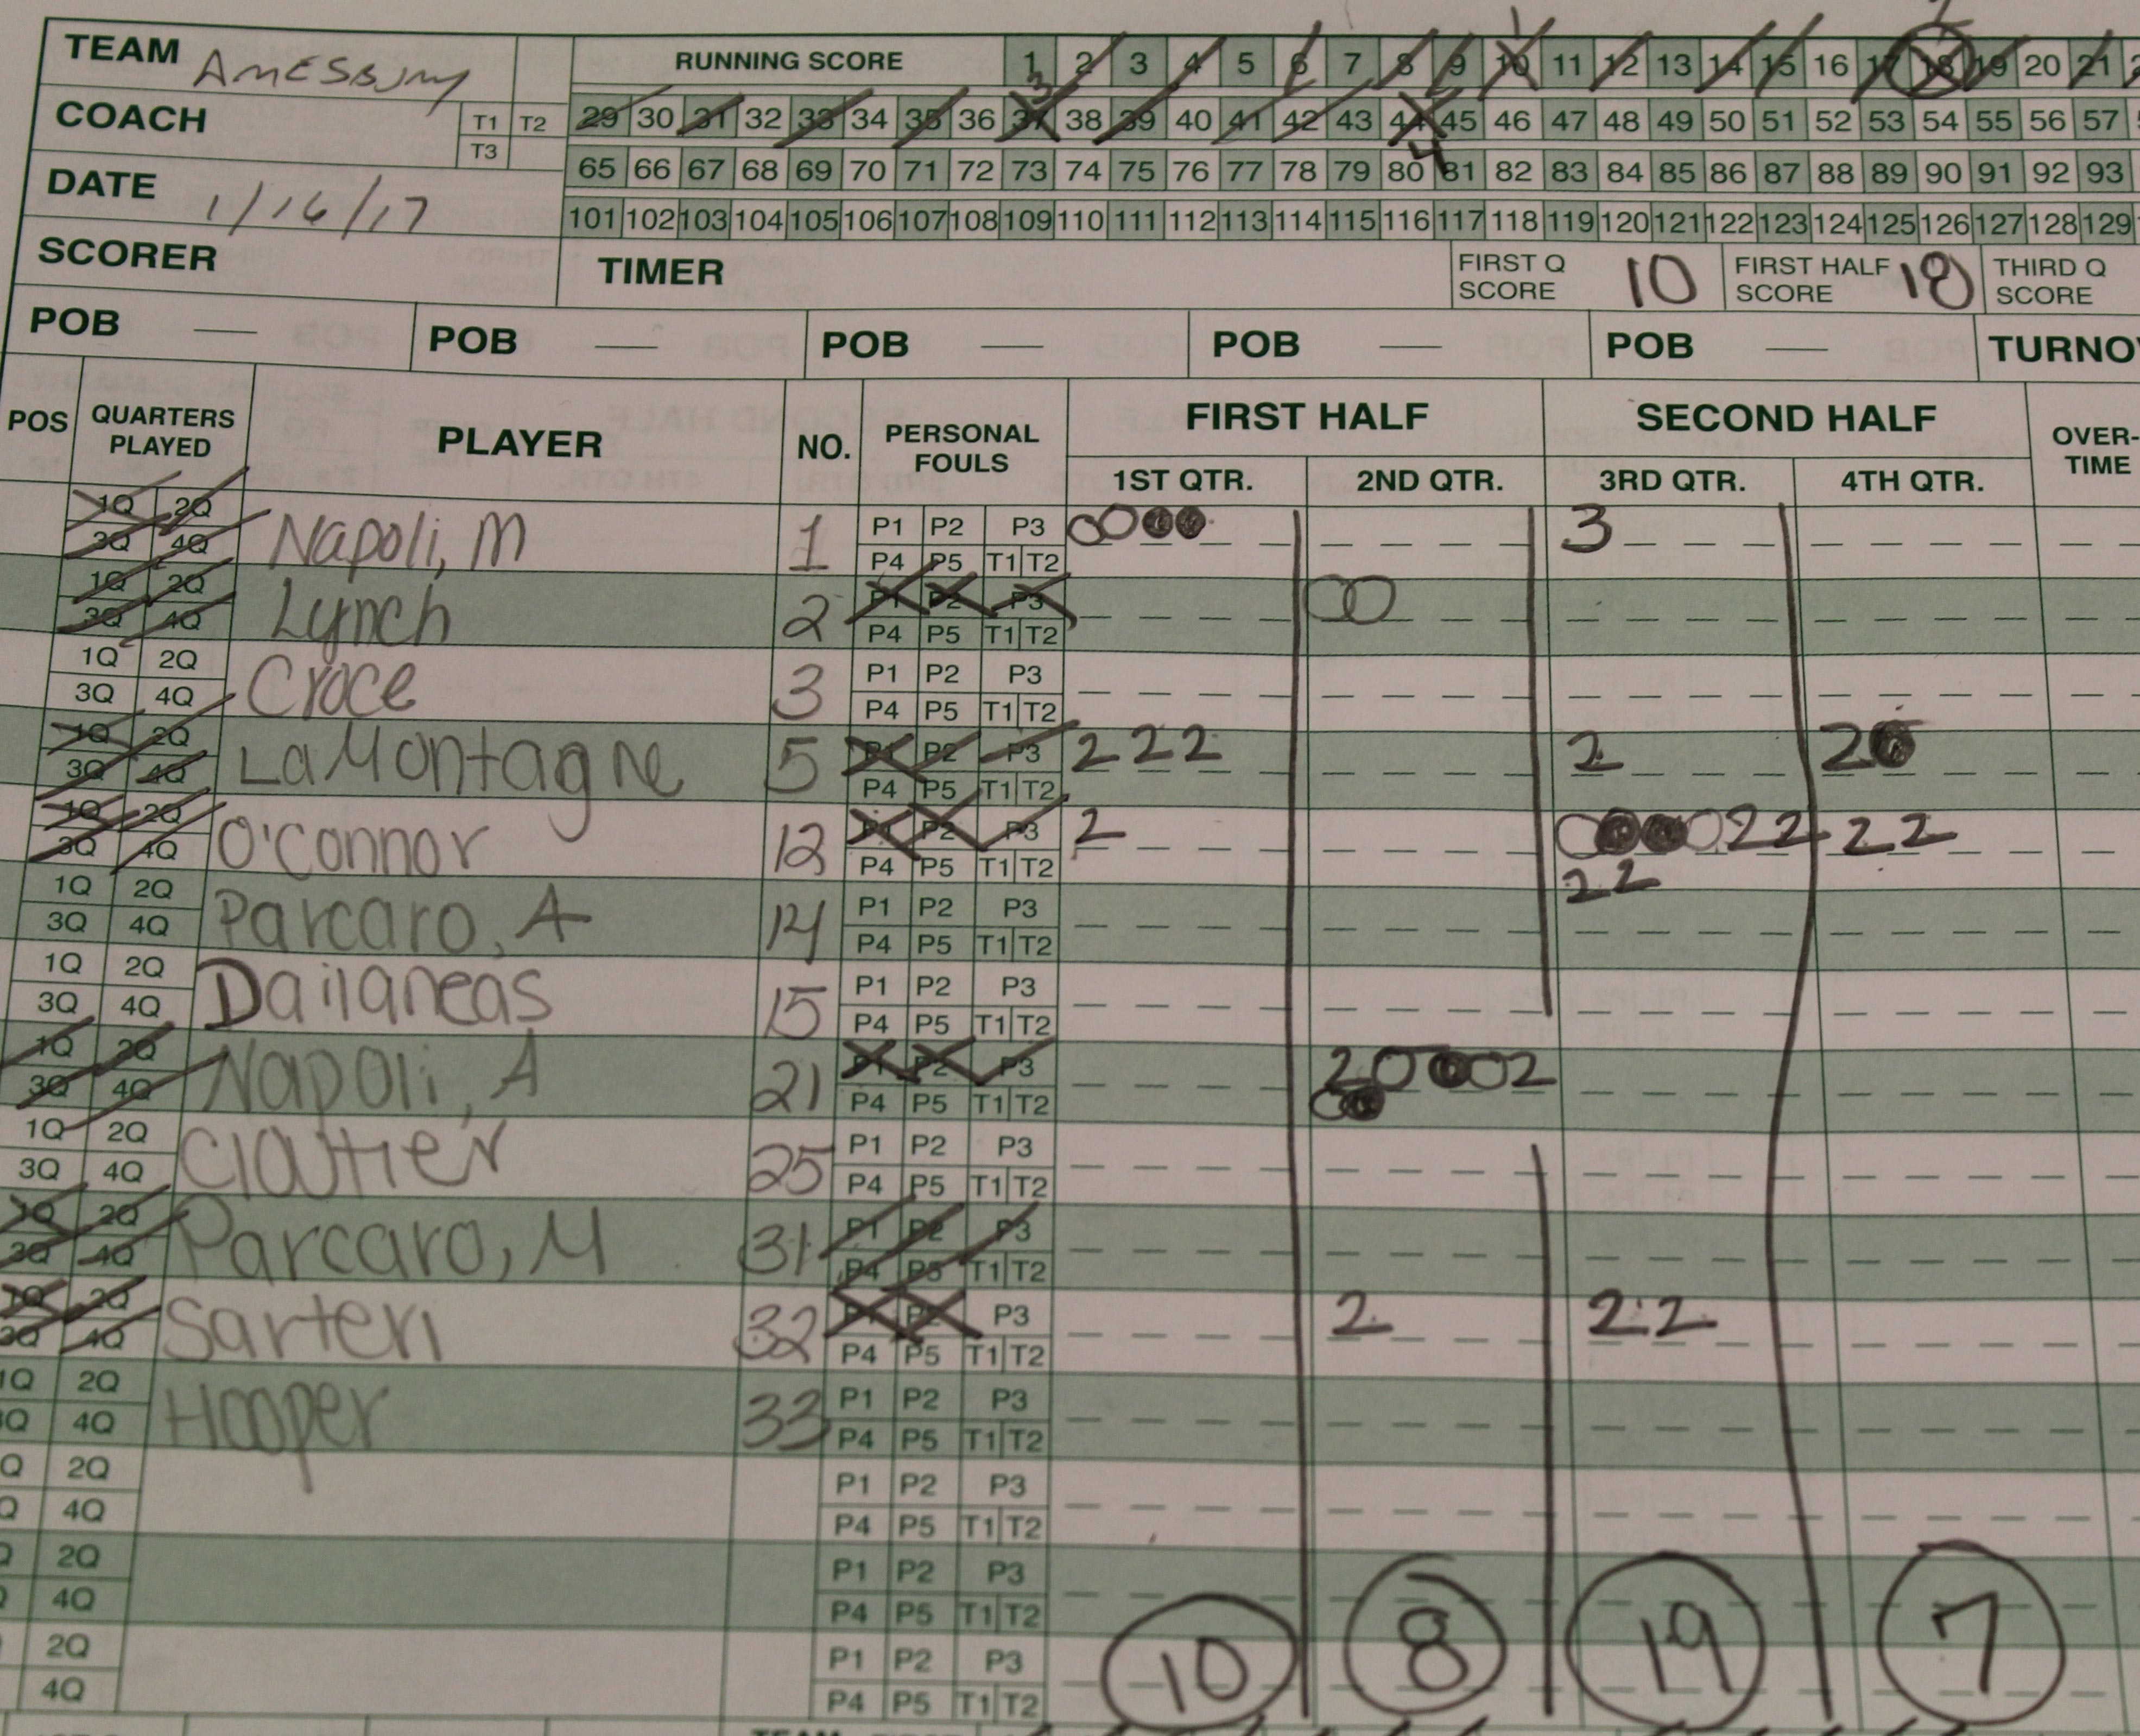 TEAM AMESBURY RUNNING SCORE 1 2 3 4 5 6 7 8 9 10 11 12 13 14 15 16 17 18 19 20 21
COACH T1 T2 29 30 31 32 33 34 35 36 37 38 39 40 41 42 43 44 45 46 47 48 49 50 51 52 53 54 55 56 57
T3
DATE 1/16/17 65 66 67 68 69 70 71 72 73 74 75 76 77 78 79 80 81 82 83 84 85 86 87 88 89 90 91 92 93
101 102 103 104 105 106 107 108 109 110 111 112 113 114 115 116 117 118 119 120 121 122 123 124 125 126 127 128 129
SCORER TIMER FIRST Q SCORE 10 FIRST HALF SCORE 18 THIRD Q SCORE
POB — POB — POB — POB — POB — TURNO
POS QUARTERS PLAYED PLAYER NO. PERSONAL FOULS FIRST HALF SECOND HALF OVER-TIME
1ST QTR. 2ND QTR. 3RD QTR. 4TH QTR.
1Q 2Q Napoli, M 1 P1 P2 P3 3
3Q 4Q P4 P5 T1 T2
1Q 2Q Lynch 2 P1 P2 P3
3Q 4Q P4 P5 T1 T2
1Q 2Q Croce 3 P1 P2 P3
3Q 4Q P4 P5 T1 T2
1Q 2Q LaMontagne 5 P1 P2 P3 2 2 2 2 2
3Q 4Q P4 P5 T1 T2
1Q 2Q O'Connor 12 P1 P2 P3 2 2 2 2 2
3Q 4Q P4 P5 T1 T2 2 2
1Q 2Q Parcaro, A 14 P1 P2 P3
3Q 4Q P4 P5 T1 T2
1Q 2Q Dailaneas 15 P1 P2 P3
3Q 4Q P4 P5 T1 T2
1Q 2Q Napoli, A 21 P1 P2 P3 2 2
3Q 4Q P4 P5 T1 T2
1Q 2Q Cloutier 25 P1 P2 P3
3Q 4Q P4 P5 T1 T2
1Q 2Q Parcaro, M 31 P1 P2 P3
3Q 4Q P4 P5 T1 T2
1Q 2Q Sarteri 32 P1 P2 P3 2 2 2
3Q 4Q P4 P5 T1 T2
1Q 2Q Hooper 33 P1 P2 P3
3Q 4Q P4 P5 T1 T2
Q 2Q P1 P2 P3
Q 4Q P4 P5 T1 T2
2Q P1 P2 P3
4Q P4 P5 T1 T2
2Q P1 P2 P3
4Q P4 P5 T1 T2
10 8 19 7